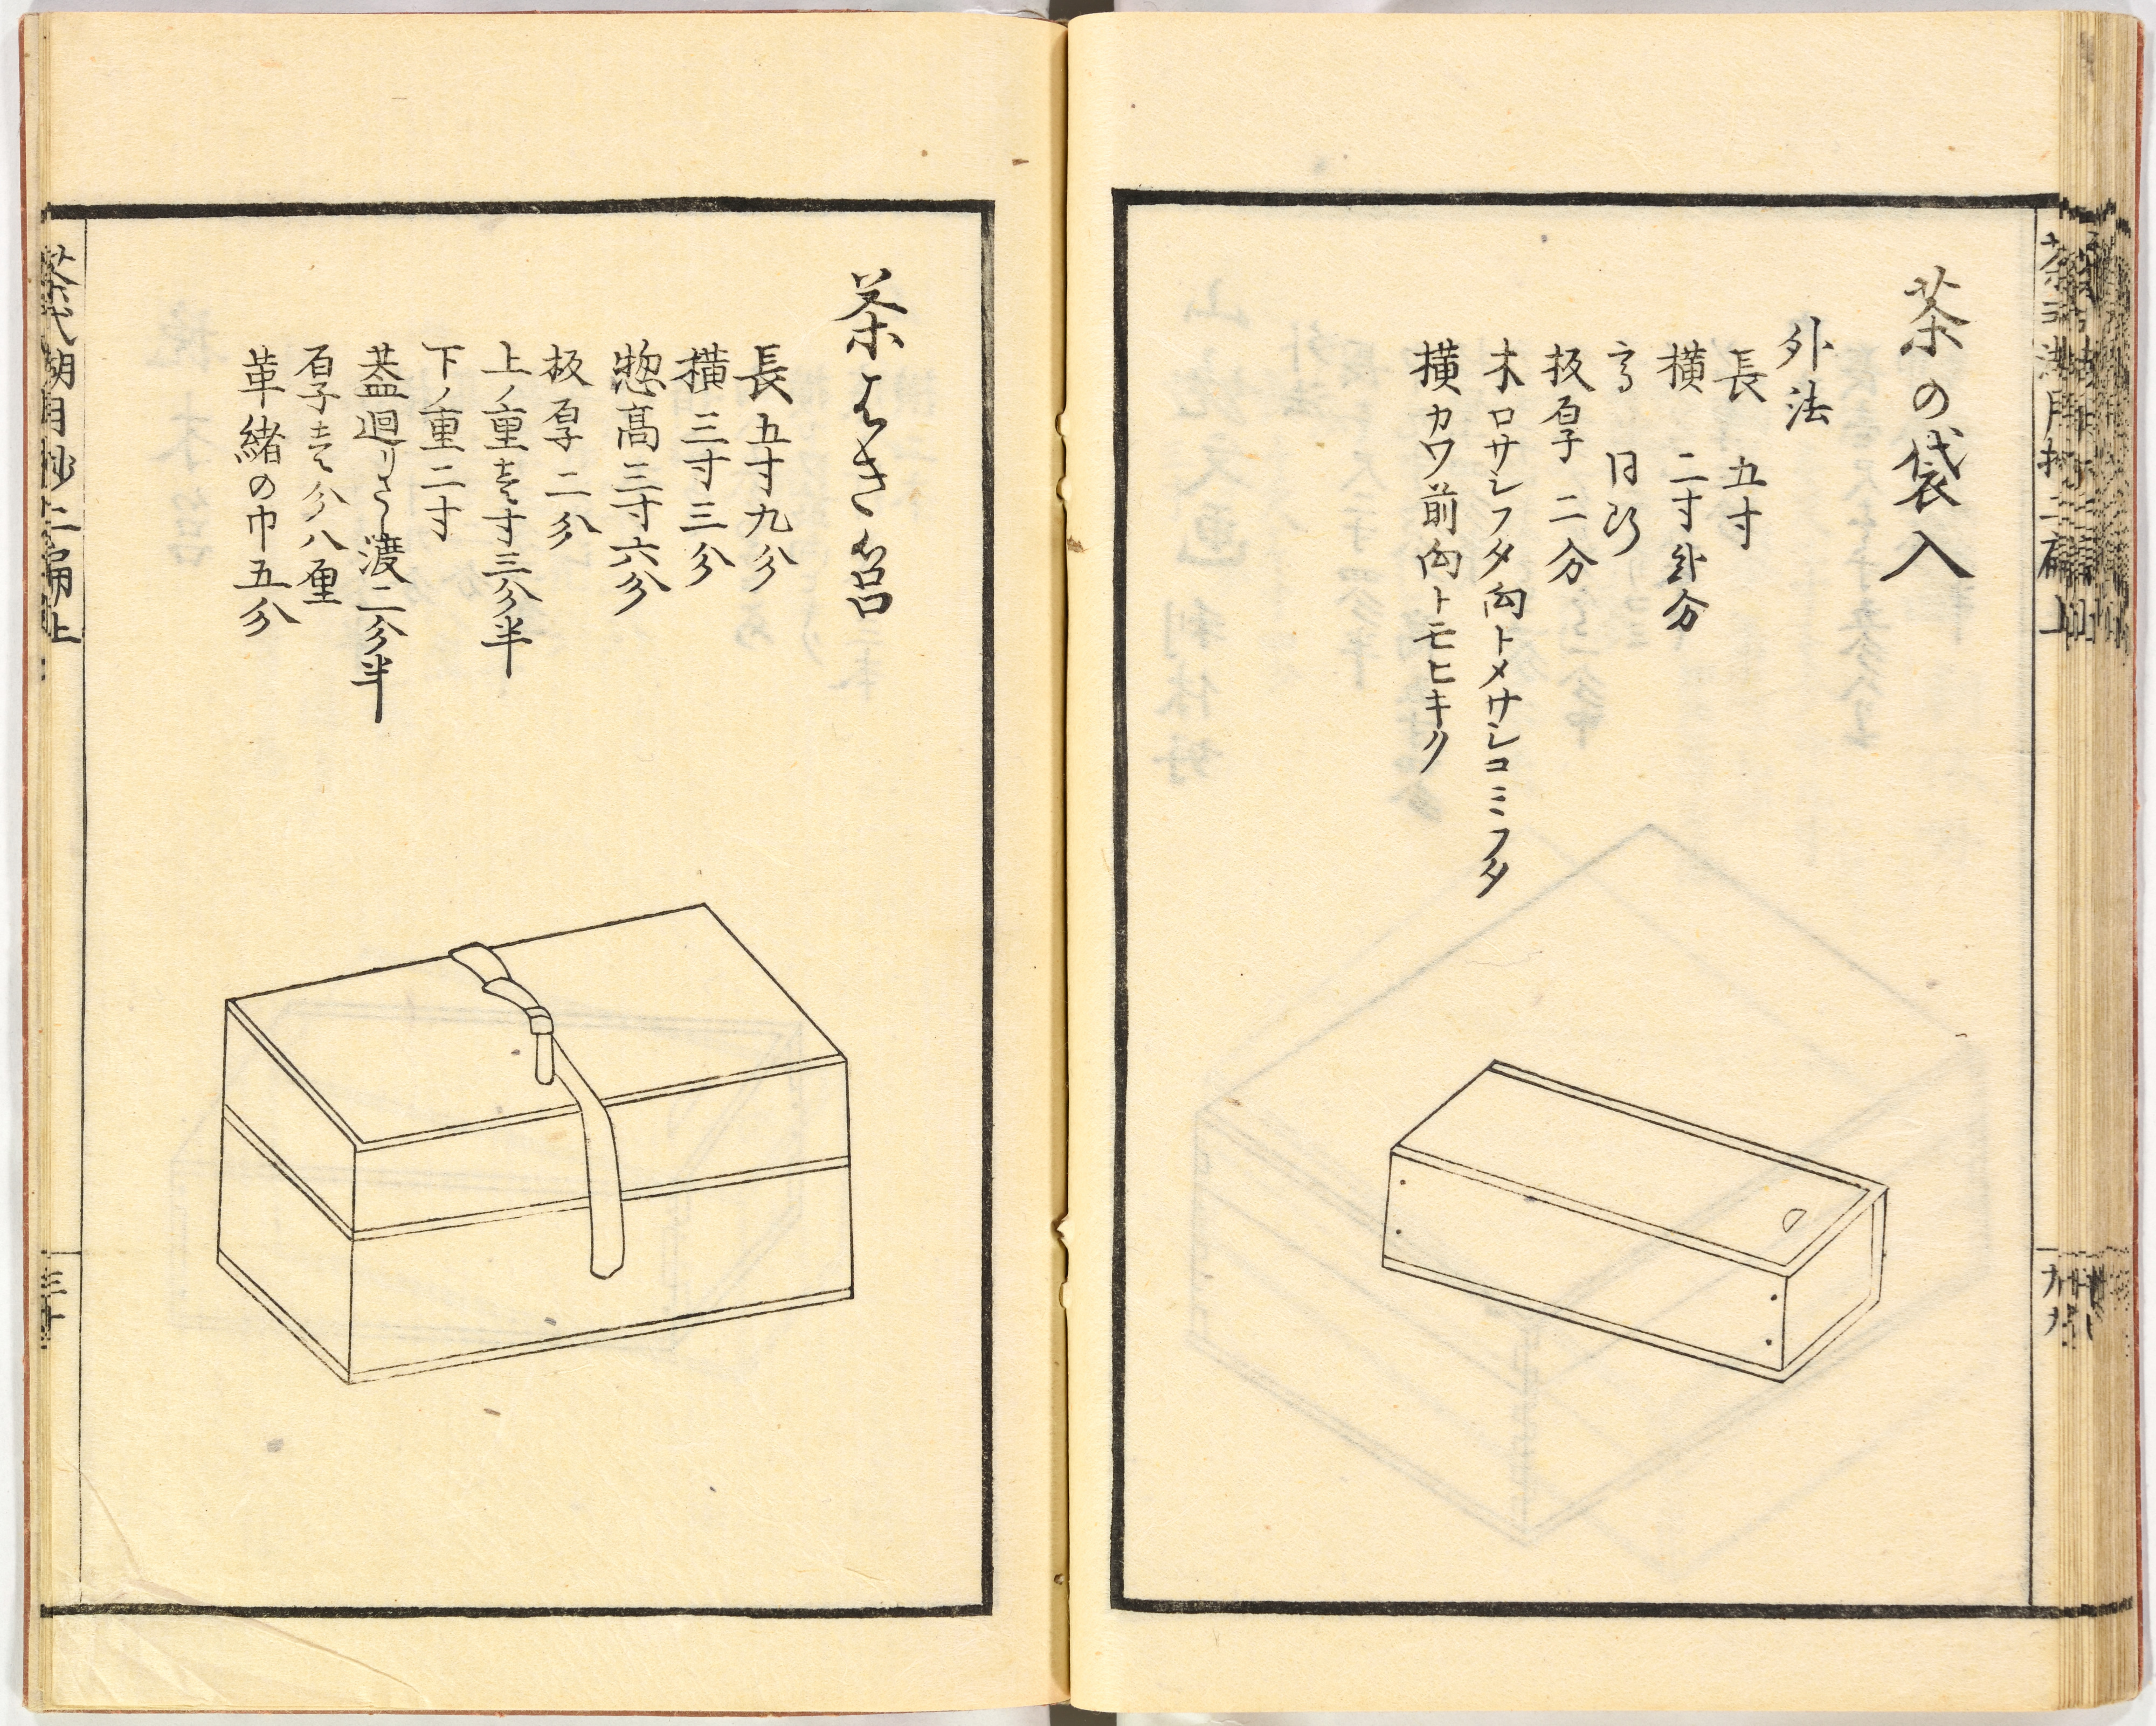 茶の袋入
外法
長 五寸
横 二寸 分
高 同断
板厚 二分
木口サシフタ向トメサシコミフタ
横カワ前向トモヒキノ
茶はき筥
長五寸九分
横三寸三分
惣高三寸六分
板厚二分
上ノ重壱寸三分半
下ノ重二寸
蓋廻りさし渡二分半
厚壱分八厘
革緒の巾五分
茶式湖月抄二扁上
三十